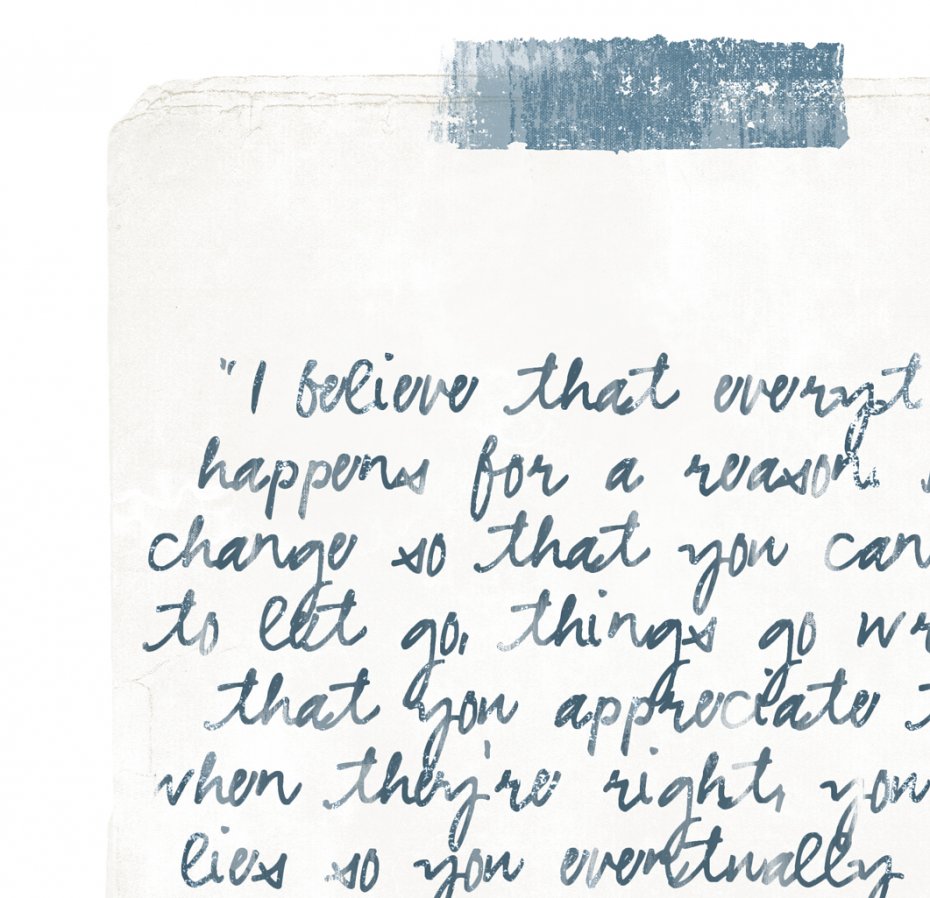 "I believe that everyt
happens for a reason.
change so that you can
to let go, things go wr
that you appreciate t
when they're right, you
lies so you eventually